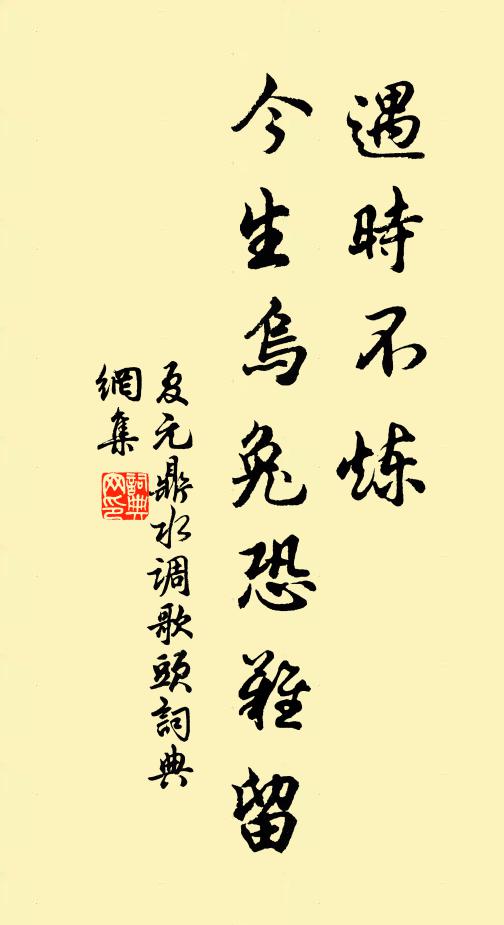 遇時不炼
今生烏兔恐難留
夏元鼎水调歌頭詞典
網集
詞典
网印